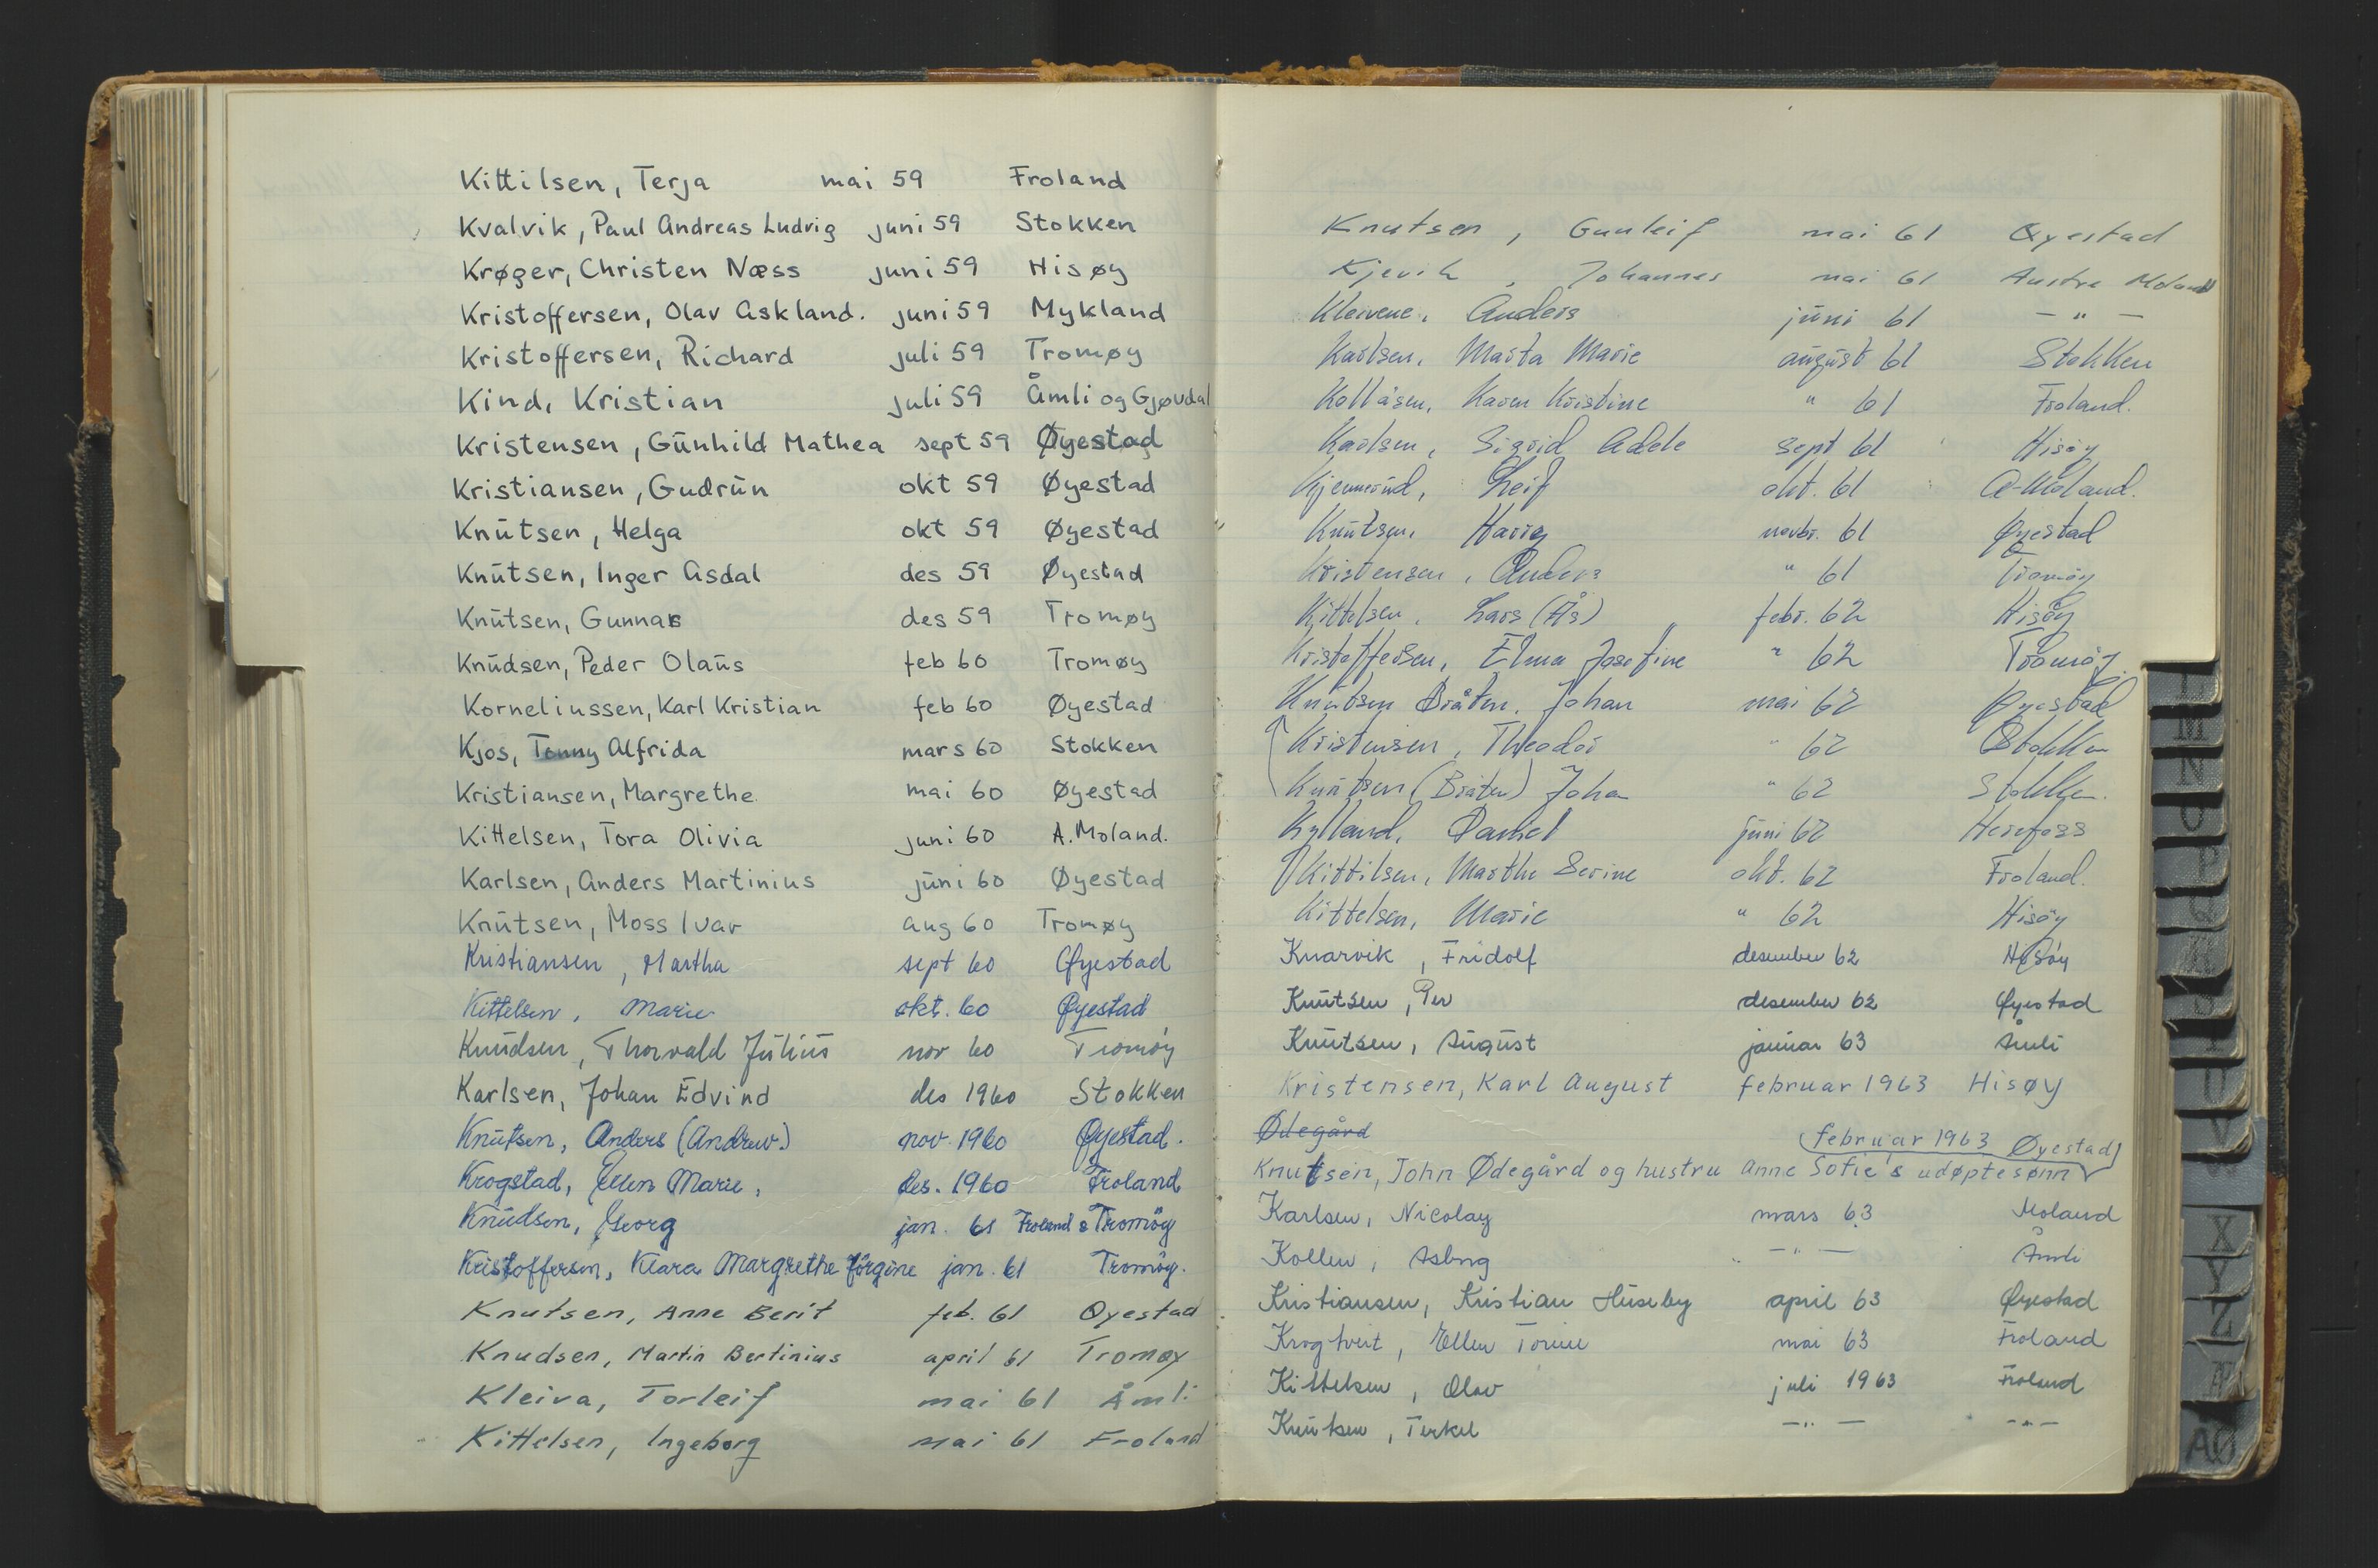 Kittilsen, Terja mai 59 Froland
Kvalvik, Paul Andreas Ludvig juni 59 Stokken
Krøger, Christen Næss juni 59 Hisøy
Kristoffersen, Olav Askland. juni 59 Mykland
Kristoffersen, Richard juli 59 Tromøy
Kind, Kristian juli 59 Åmli og Gjøvdal
Kristensen, Gunhild Mathea sept 59 Øyestad
Kristiansen, Gudrun okt 59 Øyestad
Knutsen, Helga okt 59 Øyestad
Knutsen, Inger Asdal des 59 Øyestad
Knutsen, Gunnar des 59 Tromøy
Knudsen, Peder Olaus feb 60 Tromøy
Korneliussen, Karl Kristian feb 60 Øyestad
Kjos, Tonny Alfrida mars 60 Stokken
Kristiansen, Margrethe mai 60 Øyestad
Kittelsen, Tora Olivia juni 60 A. Moland.
Karlsen, Anders Martinius juni 60 Øyestad
Knutsen, Moss Ivar aug 60 Tromøy
Kristiansen, Martha sept 60 Øyestad
Kittelsen, Marie okt. 60 Øyestad
Knudsen, Thorvald Julius nov 60 Tromöy
Karlsen, Johan Edvind des 1960 Stokken
Knutsen, Anders (Andrew.) nov. 1960 Øyestad.
Krogstad, Ellen Marie, des. 1960 Froland
Knudsen, Georg jan. 61 Froland & Tromöy
Kristoffersen, Klara Margrethe Jörgine jan. 61 Tromöy.
Knutsen, Anne Berit feb. 61 Oyestad
Knudsen, Martin Bertinius april 61 Tromøy
Kleiva, Torleif mai 61 Åmli
Kittelsen, Ingeborg mai 61 Froland
Knutsen, Gunleif mai 61 Øyestad
Kjevik, Johannes mai 61 Austre Moland
Kleivene, Anders juni 61 — " —
Karlsen, Marta Marie august 61 Stokken
Kollåsen, Karen Kristine " 61 Froland.
Karlsen, Sigrid Adele sept 61 Hisöy
Kjennerud, Leif okt. 61 A-Moland.
Knutsen, Harry novbr. 61 Øyestad
Kristensen, Anders " 61 Tromöy
Kittelsen, Lars (Ås) febr. 62 Hisöy
Kristoffersen, Elma Josefine " 62 Tromöy.
Knutsen Bråten, Johan mai 62 Øyestad
Kristensen, Theodor " 62 Stokken
Knutsen (Bråten) Johan " 62 Stokken.
Kylland, Daniel juni 62 Herefoss
Kittilsen, Marthe Serine okt. 62 Froland.
Kittelsen, Marie " 62 Hisöy
Knarvik, Fridolf desember 62 Hisöy
Knutsen, Per desember 62 Øyestad
Knutsen, August januar 63 Åmli
Kristensen, Karl August februar 1963 Hisøy
Ødegård
februar 1963 Øyestad
Knutsen, John Ødegård og hustru Anne Sofie's udøpte sønn
Karlsen, Nicolay mars 63 Moland
Kollen, Asbrg — " — Åmli
Kristiansen, Kristian Huseby april 63 Øyestad
Krogtveit, Ellen Torine mai 63 Froland
Kittelsen, Olav juli 1963 Froland
Knutsen, Terkel — " — — " —
X
Y
Z
Æ
AØ